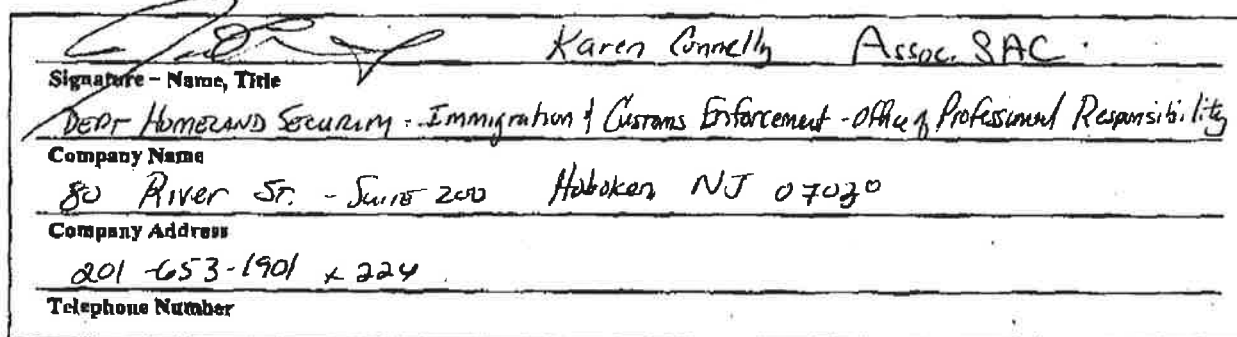 Karen Connelly Assoc. SAC
Signature - Name, Title
DEPT HOMELAND SECURITY - Immigration & Customs Enforcement - Office of Professional Responsibility
Company Name
80 River ST. - SUITE 200 Hoboken NJ 07030
Company Address
201-653-1901 x 224
Telephone Number